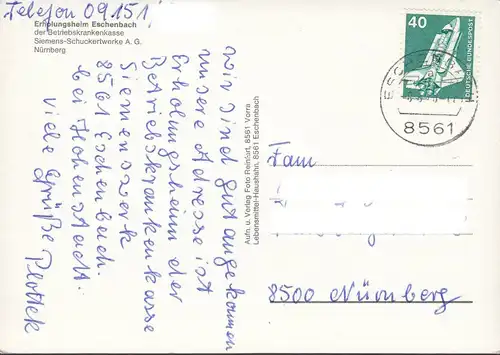 Telefon 09151
Erholungsheim Eschenbach
der Betriebskrankenkasse
Siemens-Schuckertwerke A. G.
Nürnberg
wir sind gut angekommen
unsere Adresse ist
Erholungsheim der
Betriebskrankenkasse
Siemenswerk
8561 Eschenbach
bei Hohenstadt.
viele Grüße Plottek
Aufn. u. Verlag Foto Reinfort, 8561 Vorra
Lebensmittel-Haushahn, 8561 Eschenbach
40
DEUTSCHE BUNDESPOST
8561
Fam
8500 Nürnberg